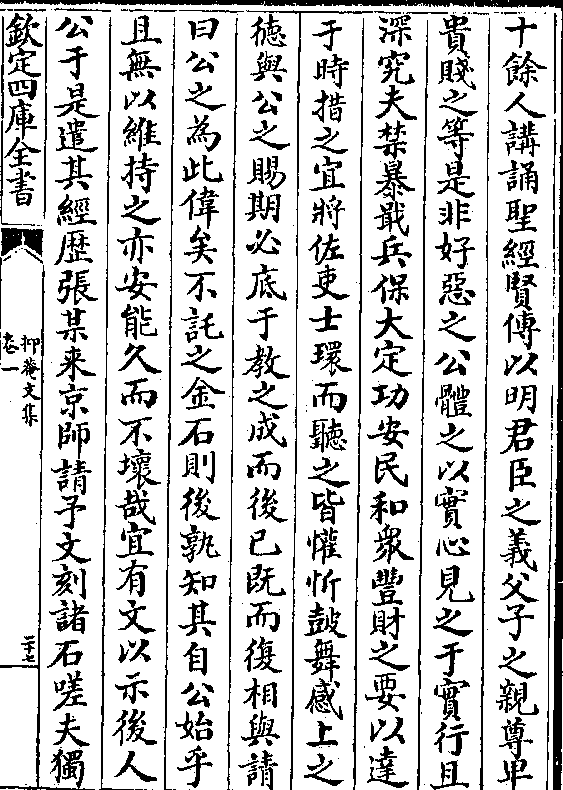 十餘人講誦聖經賢傳以明君臣之義父子之親尊卑
貴賤之等是非好惡之公體之以實心見之于實行且
深究夫禁暴戢兵保大定功安民和衆豐財之要以達
于時措之宜將佐吏士環而聽之皆懽忻鼓舞感上之
徳與公之賜期必底于教之成而後已既而復相與請
曰公之為此偉矣不託之金石則後孰知其自公始乎
且無以維持之亦安能久而不壞哉宜有文以示後人
公于是遣其經歴張某来京師請予文刻諸石嗟夫獨
欽定四庫全書
抑菴文集
卷一
二十七